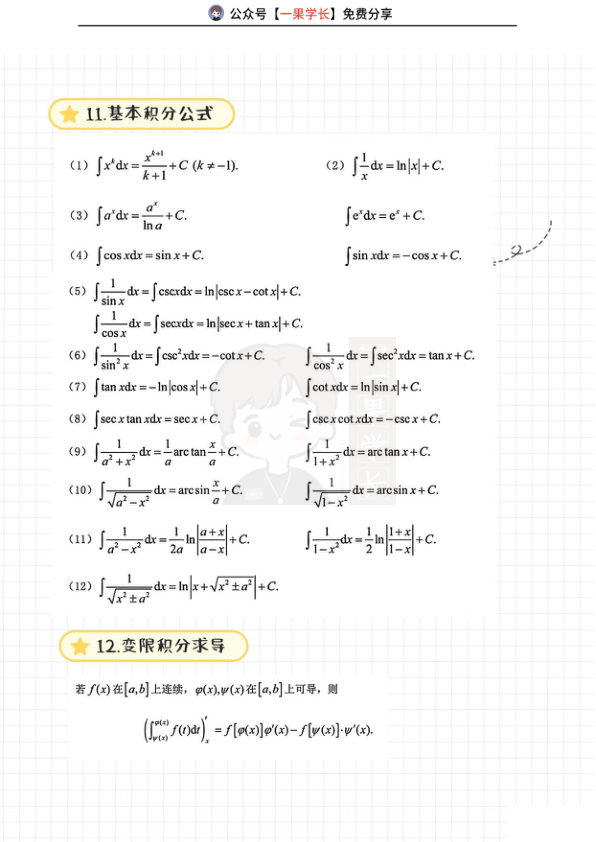 公众号【一果学长】免费分享
11.基本积分公式
(1) ∫x^k dx = x^{k+1}/(k+1) + C (k ≠ −1). (2) ∫1/x dx = ln|x| + C.
(3) ∫a^x dx = a^x/ln a + C. ∫e^x dx = e^x + C.
(4) ∫cos xdx = sin x + C. ∫sin xdx = −cos x + C.
(5) ∫1/sin x dx = ∫cscxdx = ln|csc x − cot x| + C.
∫1/cos x dx = ∫secxdx = ln|sec x + tan x| + C.
(6) ∫1/sin² x dx = ∫csc² xdx = −cot x + C. ∫1/cos² x dx = ∫sec² xdx = tan x + C.
(7) ∫tan xdx = −ln|cos x| + C. ∫cot xdx = ln|sin x| + C.
(8) ∫sec x tan xdx = sec x + C. ∫csc x cot xdx = −csc x + C.
(9) ∫1/(a² + x²) dx = 1/a arc tan x/a + C. ∫1/(1 + x²) dx = arc tan x + C.
(10) ∫1/√(a² − x²) dx = arcsin x/a + C. ∫1/√(1 − x²) dx = arcsin x + C.
(11) ∫1/(a² − x²) dx = 1/2a ln|(a + x)/(a − x)| + C. ∫1/(1 − x²) dx = 1/2 ln|(1 + x)/(1 − x)| + C.
(12) ∫1/√(x² ± a²) dx = ln|x + √(x² ± a²)| + C.
12.变限积分求导
若 f(x) 在[a,b]上连续，φ(x),ψ(x)在[a,b]上可导，则
(∫_{ψ(x)}^{φ(x)} f(t)dt)'_x = f[φ(x)]φ'(x) − f[ψ(x)]·ψ'(x).
一果学长